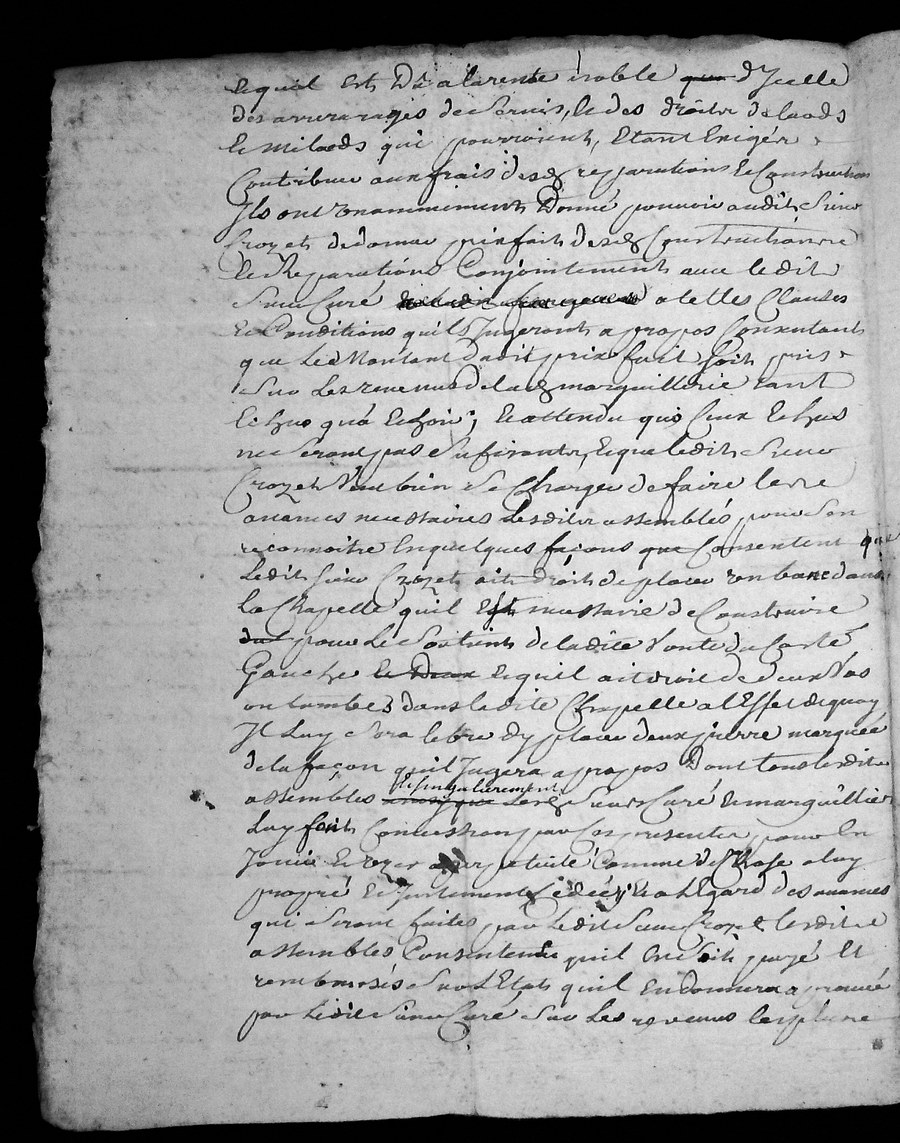 lequel Est Dû a la rente noble que d'Jcelle
des arrerages de servis, & des droits de laods
& milaods qui pourroient, Etant Exigér
Contribuer aux frais desd reparations & Constructions
Jls ont unanimement Donné pouvoir audit Sieur
Crozet de donner prixfait desd Constructions
& Reparations Conjointement avec ledit
Sieur Curé a telles Clauses
& Conditions quils Jugeront a propos Consentant
que Le Montant dudit prix fait soit pris
Sur Les revenus de lad marguillerie tant
Echus qu'a Echoir; & attendu que Ceux Echus
ne seront pas suffisants, & que ledit Sieur
Crozet Veut bien se Charger de faire les
avances necessaires Lesdits assemblés, pour l'en
reconnoitre En quelques façons que Consentent que
Ledit Sieur Crozet ait droit de placer un banc dans
La Chapelle qu'il Est necessaire de Construire
pour Le Soutient de ladite Voute du Costé
Gauche & Deux & quil ait droit de deux Vas
ou tombes dans ladite Chapelle a l'Effet de quoy
Jl Luy sera libre d'y placer deux pierre marquée
de la façon quil Jugera a propos Dont tous lesdits
assemblés & singulierement Lesd Sieurs Curé & marguillier
Luy font Concession par Ces presentes pour En
Jouir & user a perpetuité Comme de Chose a luy
propre & Justement Cedée; & a L'Egard des avances
qui seront faites par Ledit Sieur Crozet lesdits
assemblés Consentent quil En soit payé Et
remboursés sur L'Etat quil En donnera aprouvé
par Ledit Sieur Curé sur Les revenus les plus